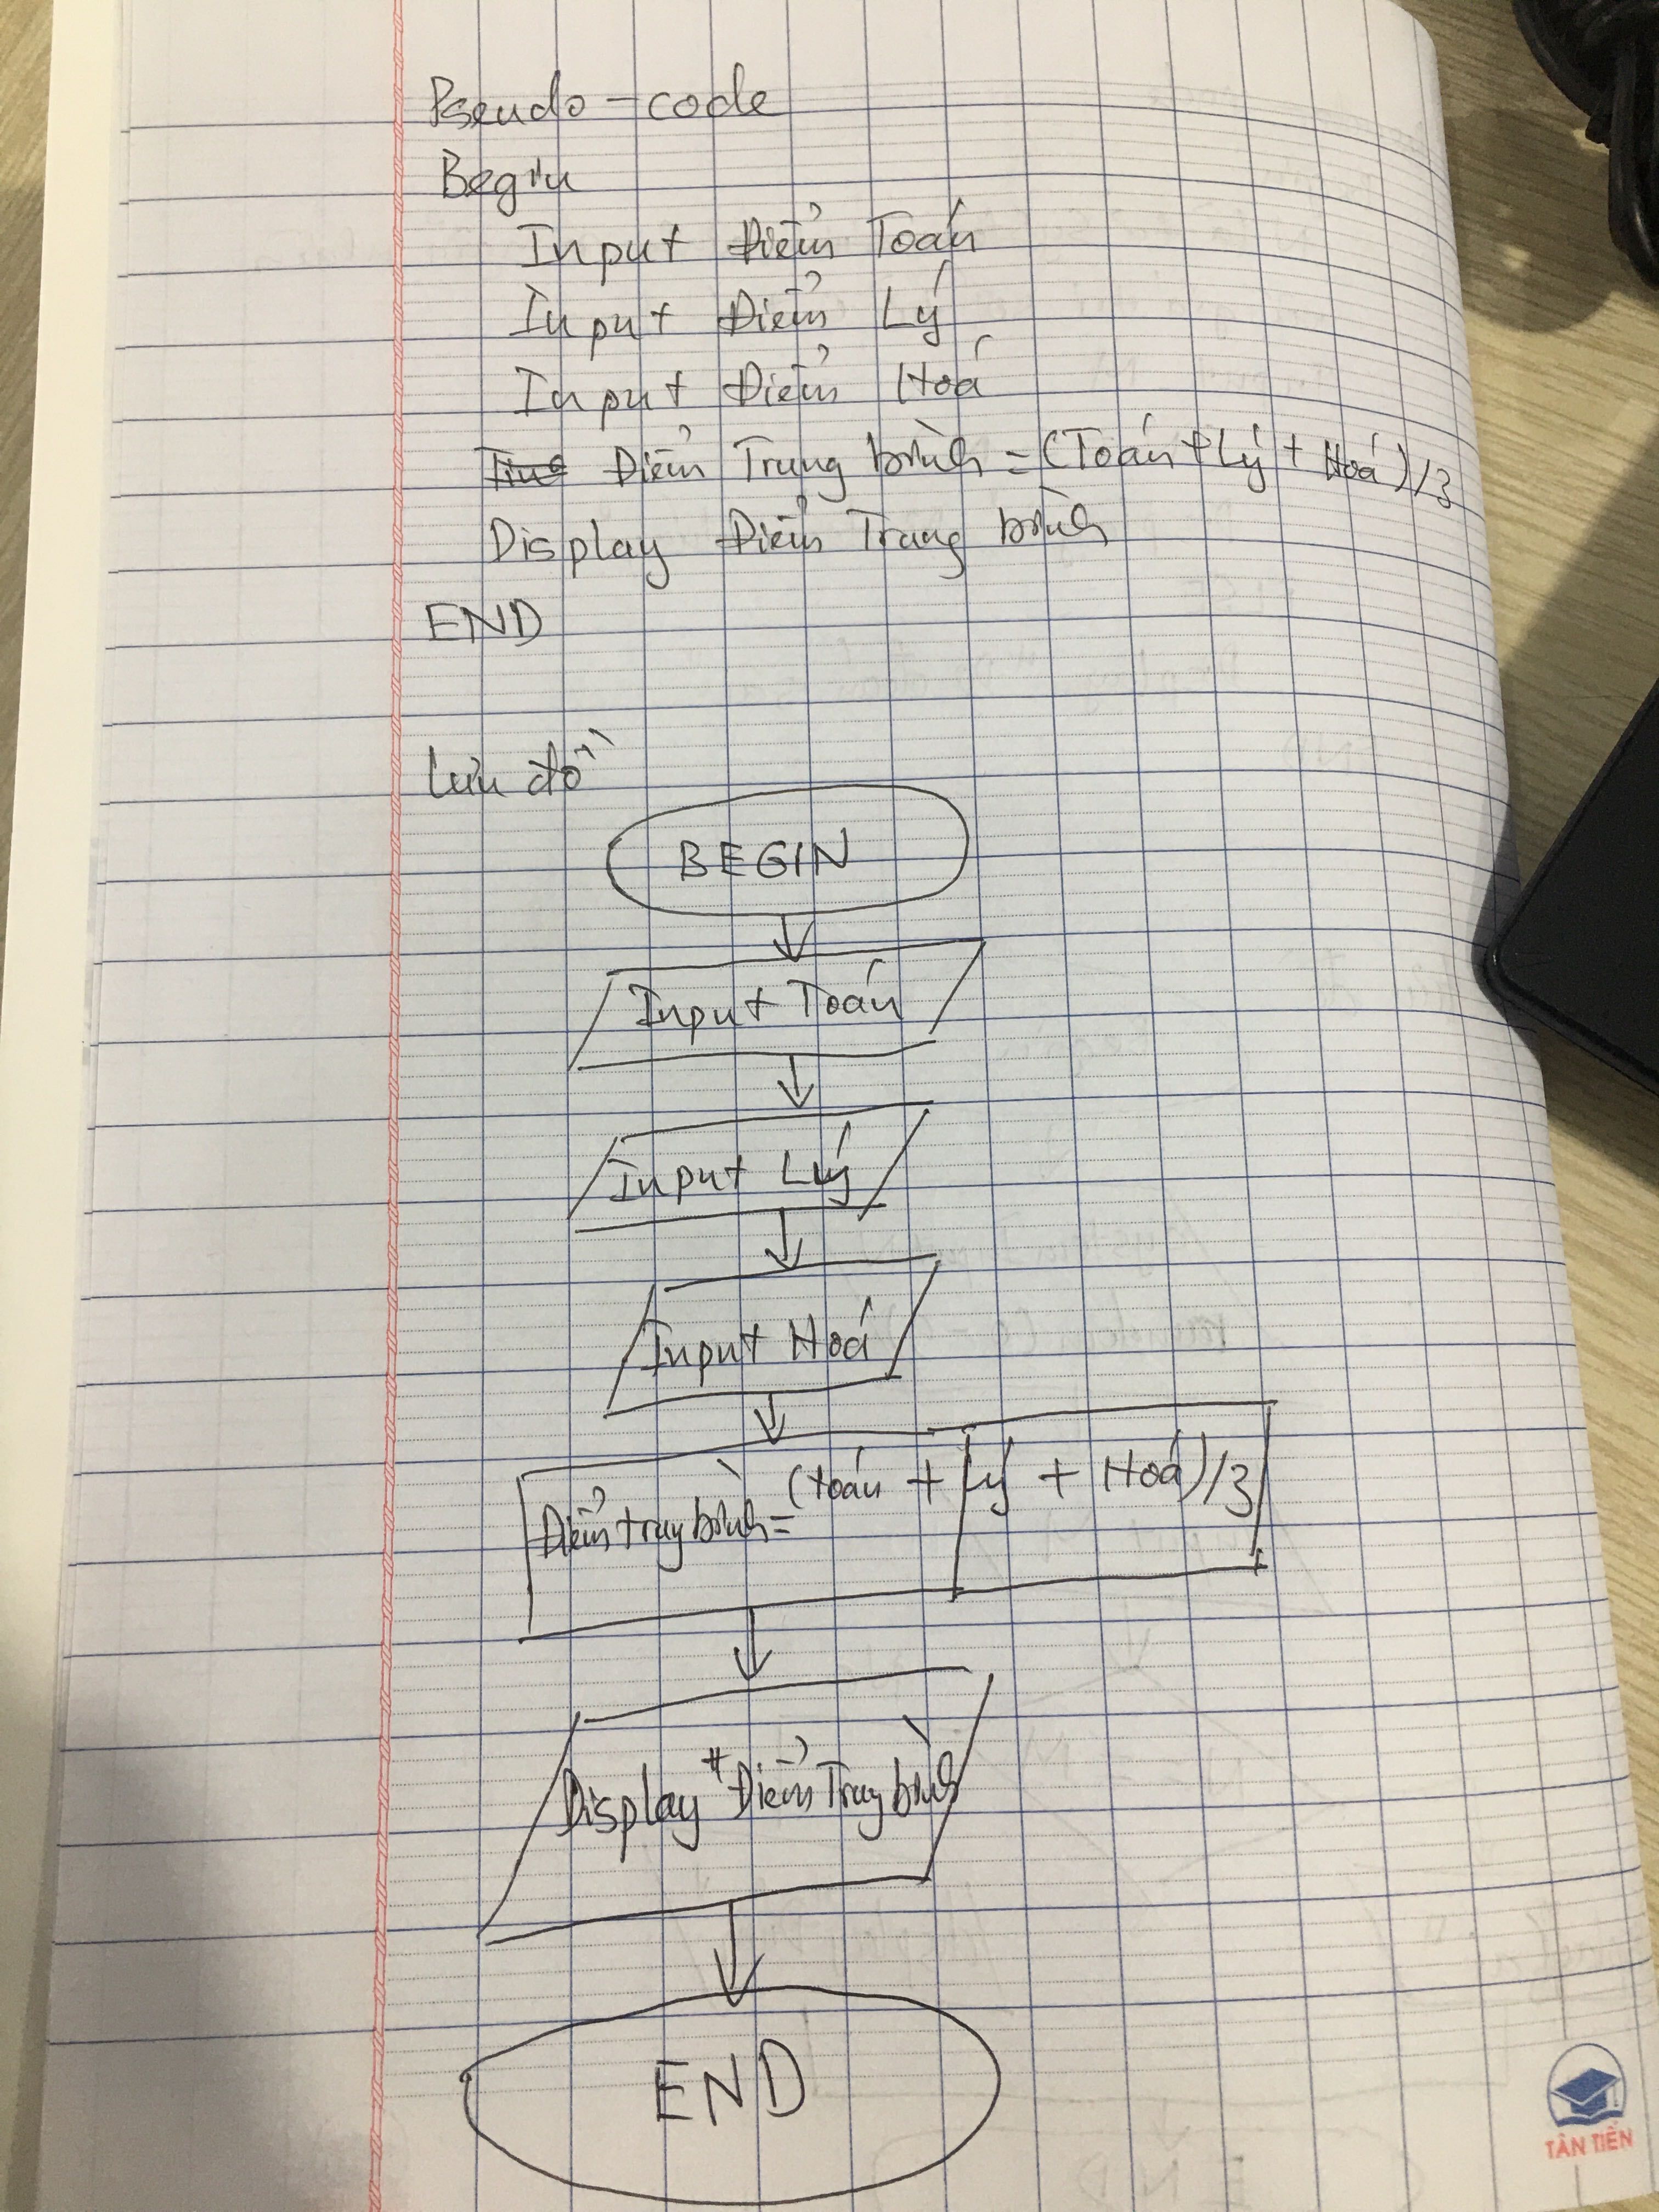 Pseudo-code
Begin
Input Điểm Toán
Input Điểm Lý
Input Điểm Hoá
Điểm Trung bình = (Toán + Lý + Hoá)/3
Display Điểm Trung bình
END
Lưu đồ
BEGIN
Input Toán
Input Lý
Input Hoá
Điểm trung bình = (toán + Lý + Hoá)/3
Display "Điểm Trung bình
END
TÂN TIẾN